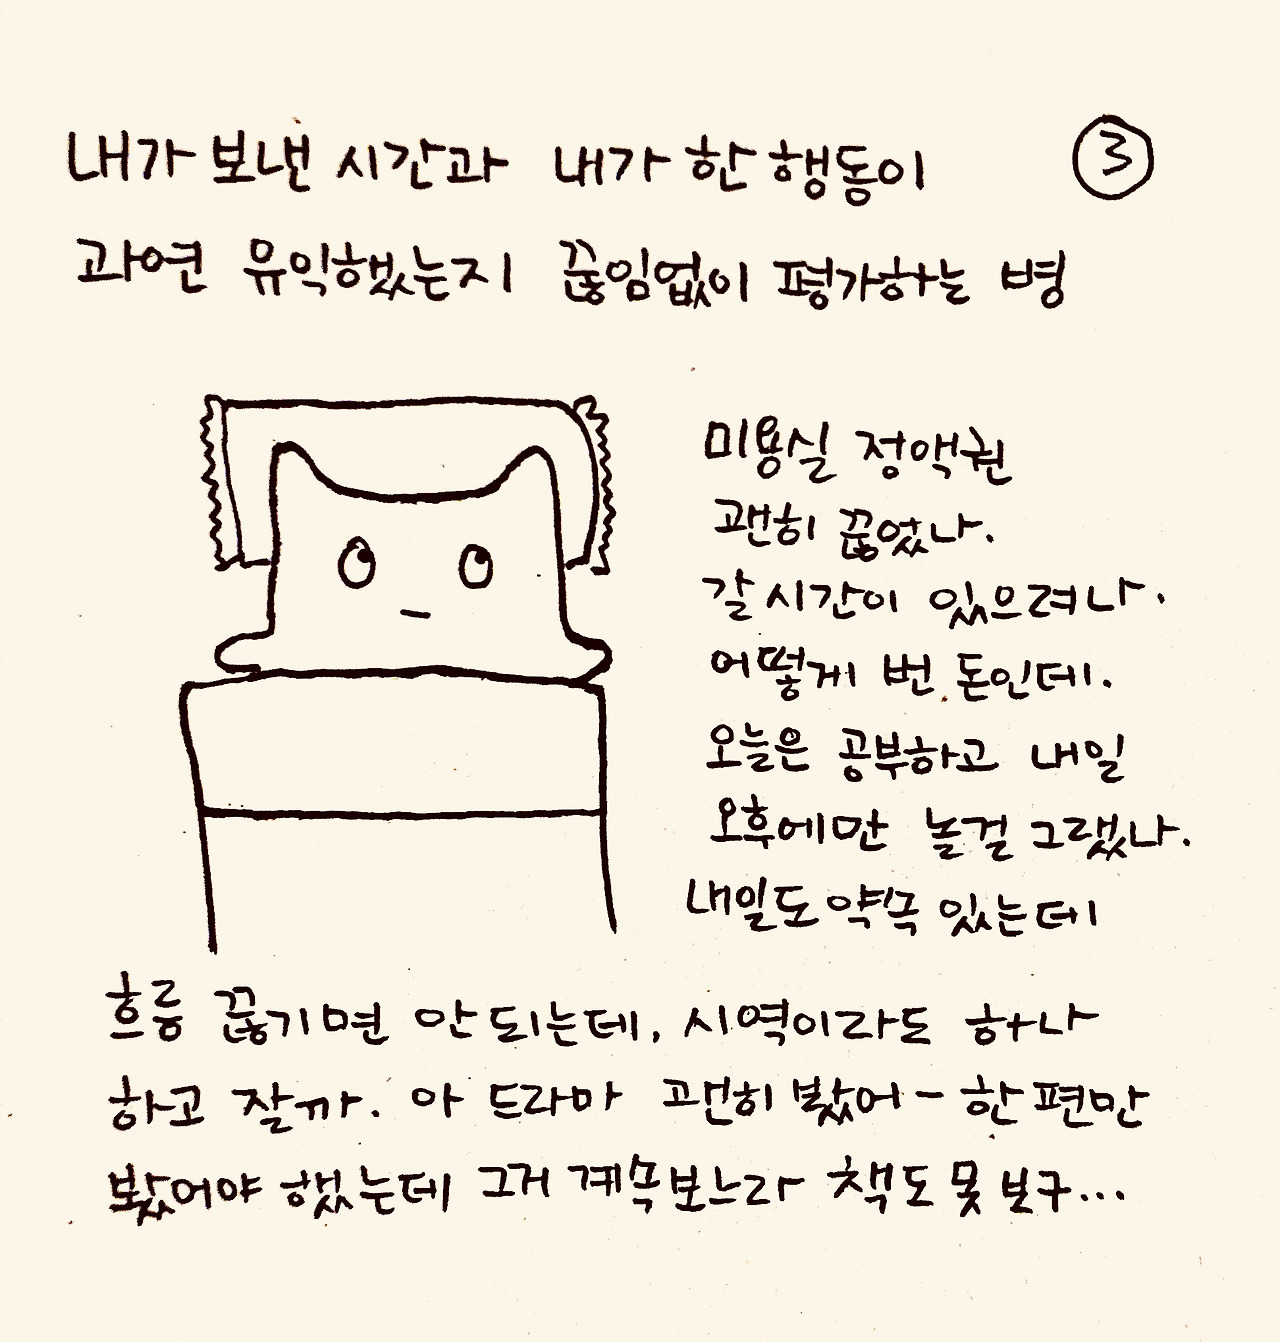 내가 보낸 시간과 내가 한 행동이
③
과연 유익했는지 끊임없이 평가하는 병
미용실 정액권
괜히 끊었나.
갈 시간이 있으려나.
어떻게 번 돈인데.
오늘은 공부하고 내일
오후에만 놀걸 그랬나.
내일도 약속 있는데
흐름 끊기면 안 되는데, 시역이라도 하나
하고 잘까. 아 드라마 괜히 봤어- 한 편만
봤어야 했는데 그거 계속 보느라 책도 못 보구...